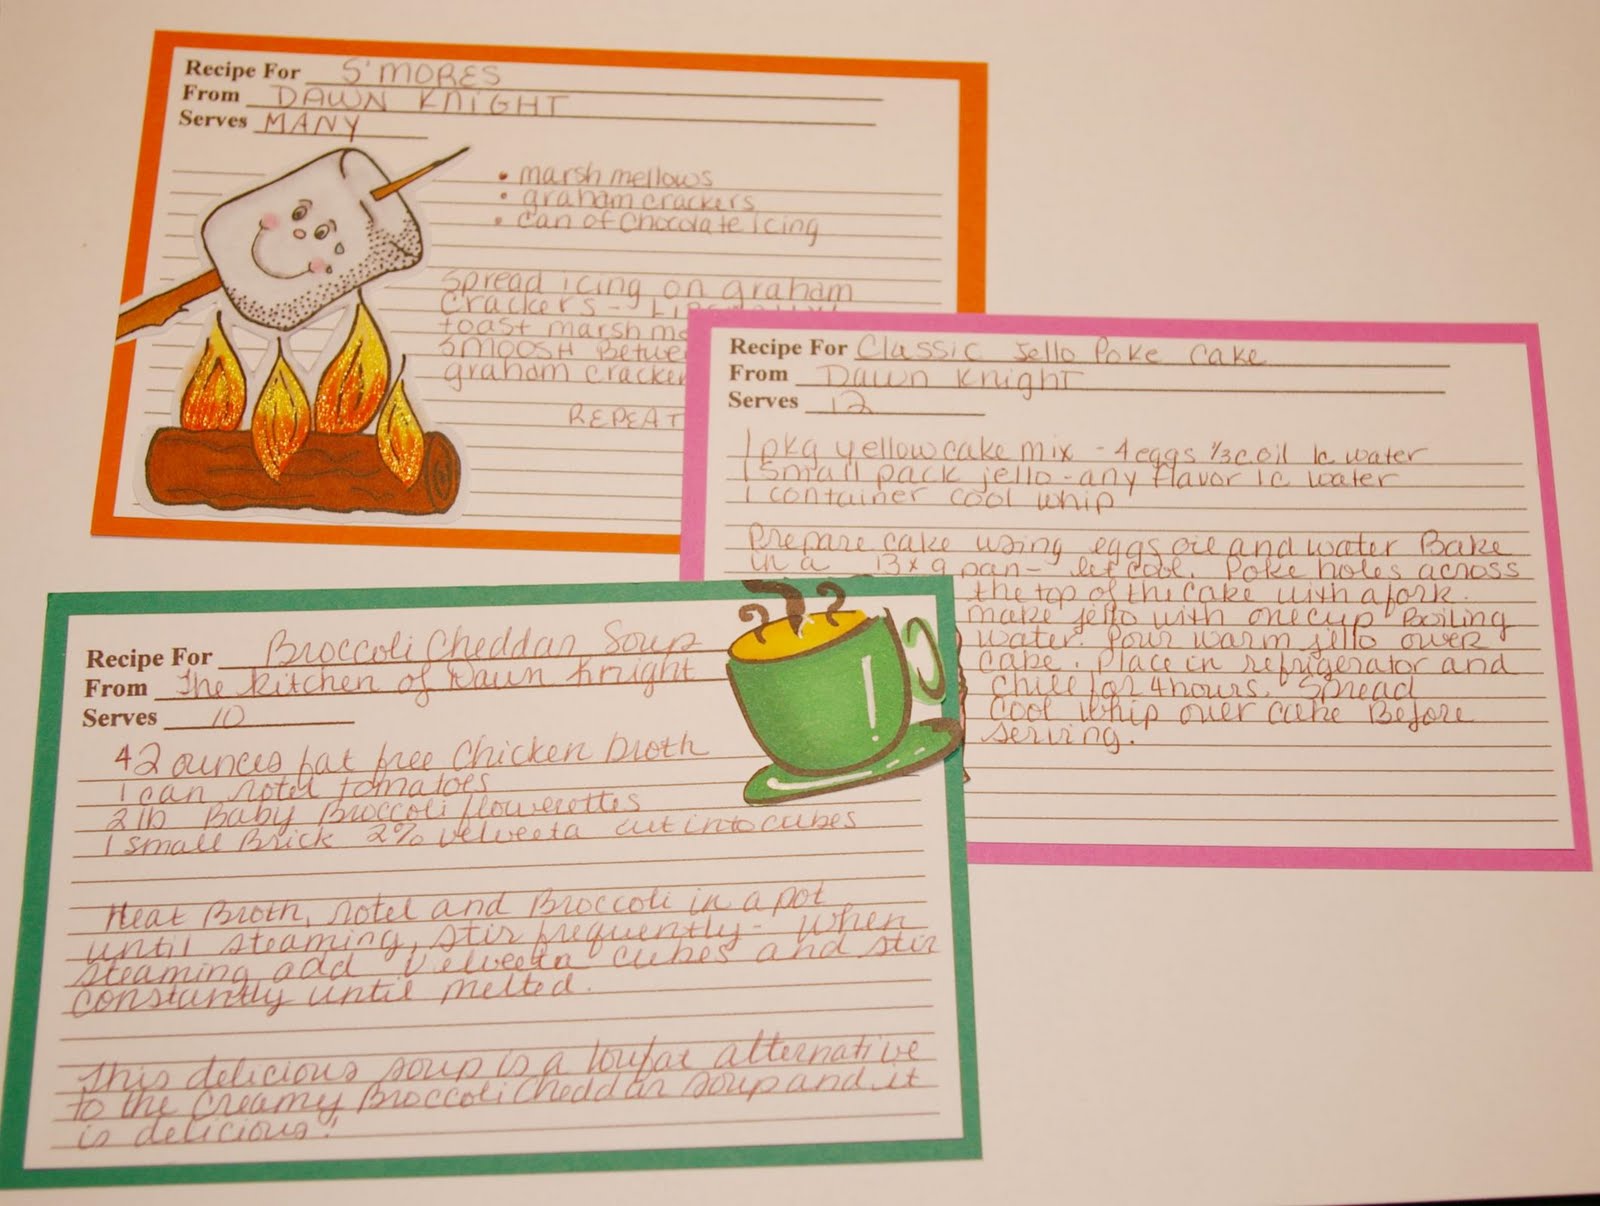 Recipe For S'MORES
From DAWN KNIGHT
Serves MANY
• marshmellows
• graham crackers
• can of chocolate icing
Spread icing on graham
crackers -
toast marsh
SMOOSH Betwe
graham cracker
REPEAT
Recipe For Classic Jello Poke Cake
From Dawn Knight
Serves 12
1 pkg yellow cake mix - 4 eggs 1/3 c oil 1c water
1 small pack jello - any flavor 1c water
1 container cool whip
Prepare cake using eggs oil and water Bake
in a 13x9 pan - let cool. Poke holes across
the top of the cake with a fork.
make jello with one cup Boiling
water. Pour warm jello over
cake. Place in refrigerator and
chill for 4 hours. Spread
cool whip over cake Before
serving.
Recipe For Broccoli Cheddar Soup
From The Kitchen of Dawn Knight
Serves 10
42 ounces fat free chicken broth
1 can rotel tomatoes
2 lb Baby Broccoli flowerettes
1 small Brick 2% velveeta cut into cubes
Heat Broth, rotel and Broccoli in a pot
until steaming, stir frequently - when
steaming add Velveeta cubes and stir
constantly until melted.
This delicious soup is a lowfat alternative
to the creamy Broccoli Cheddar soup and it
is delicious!